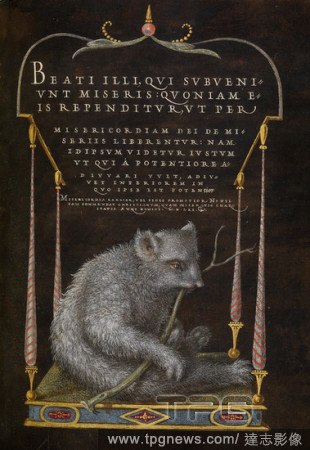 BEATI ILLI, QVI SVBVENI⸗
VNT MISERIS: QVONIAM E⸗
IS REPENDITVR, VT PER
MISERICORDIAM DEI DE MI⸗
SERIIS LIBERENTVR: NAM
IDIPSVM VIDETVR IVSTVM
VT QVI À POTENTIORE A⸗
DIVVARI VVLT, ADIV⸗
VET INFERIOREM IN
QVO IPSE EST POTENTIOR
TPG
www.tpgnews.com/達志影像